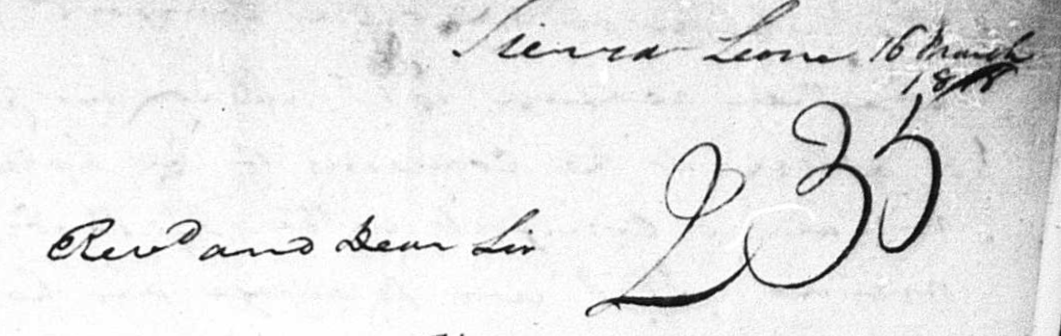 Sierra Leone 16 March
1818
235
Revd and Dear Sir